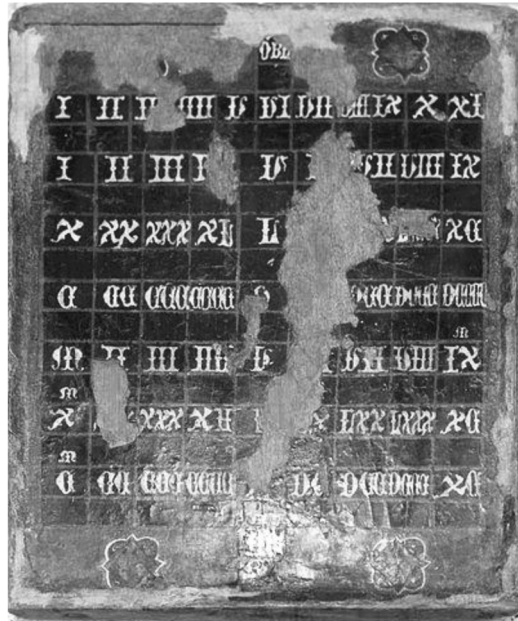 OBL
I II IIII V VI VII IX X XI
I II III V VIII IX
X XX XXX XL L XC
C CC CCC CCCC DCCC DCCCC
M
M III IIII VII VIII IX
M
X XXX XL LXX LXXX XC
M
C CC CCC CCCC DC DCC DCCC XC